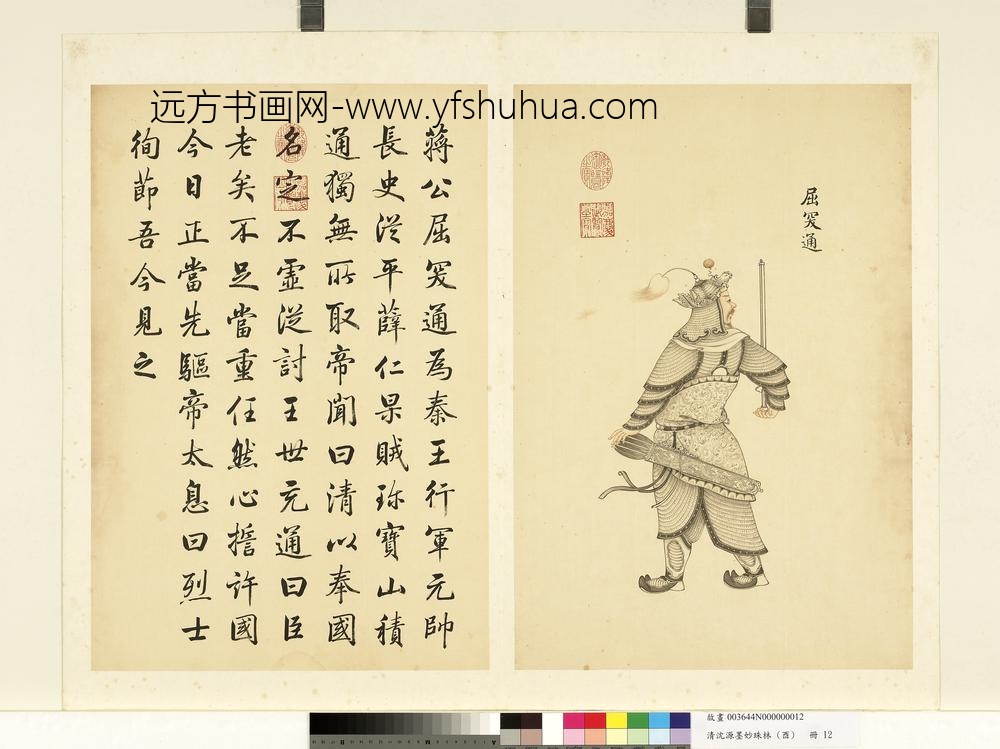 远方书画网-www.yfshuhua.com
屈突通
蔣公屈突通為秦王行軍元帥
長史從平薛仁杲賊珎寶山積
通獨無所取帝聞曰清以奉國
名定不虛從討王世充通曰臣
老矣不足當重任然心許國
今日正當先驅帝太息曰烈士
徇節吾今見之
故畫 003644N000000012
清沈源墨妙珠林（酉） 冊 12